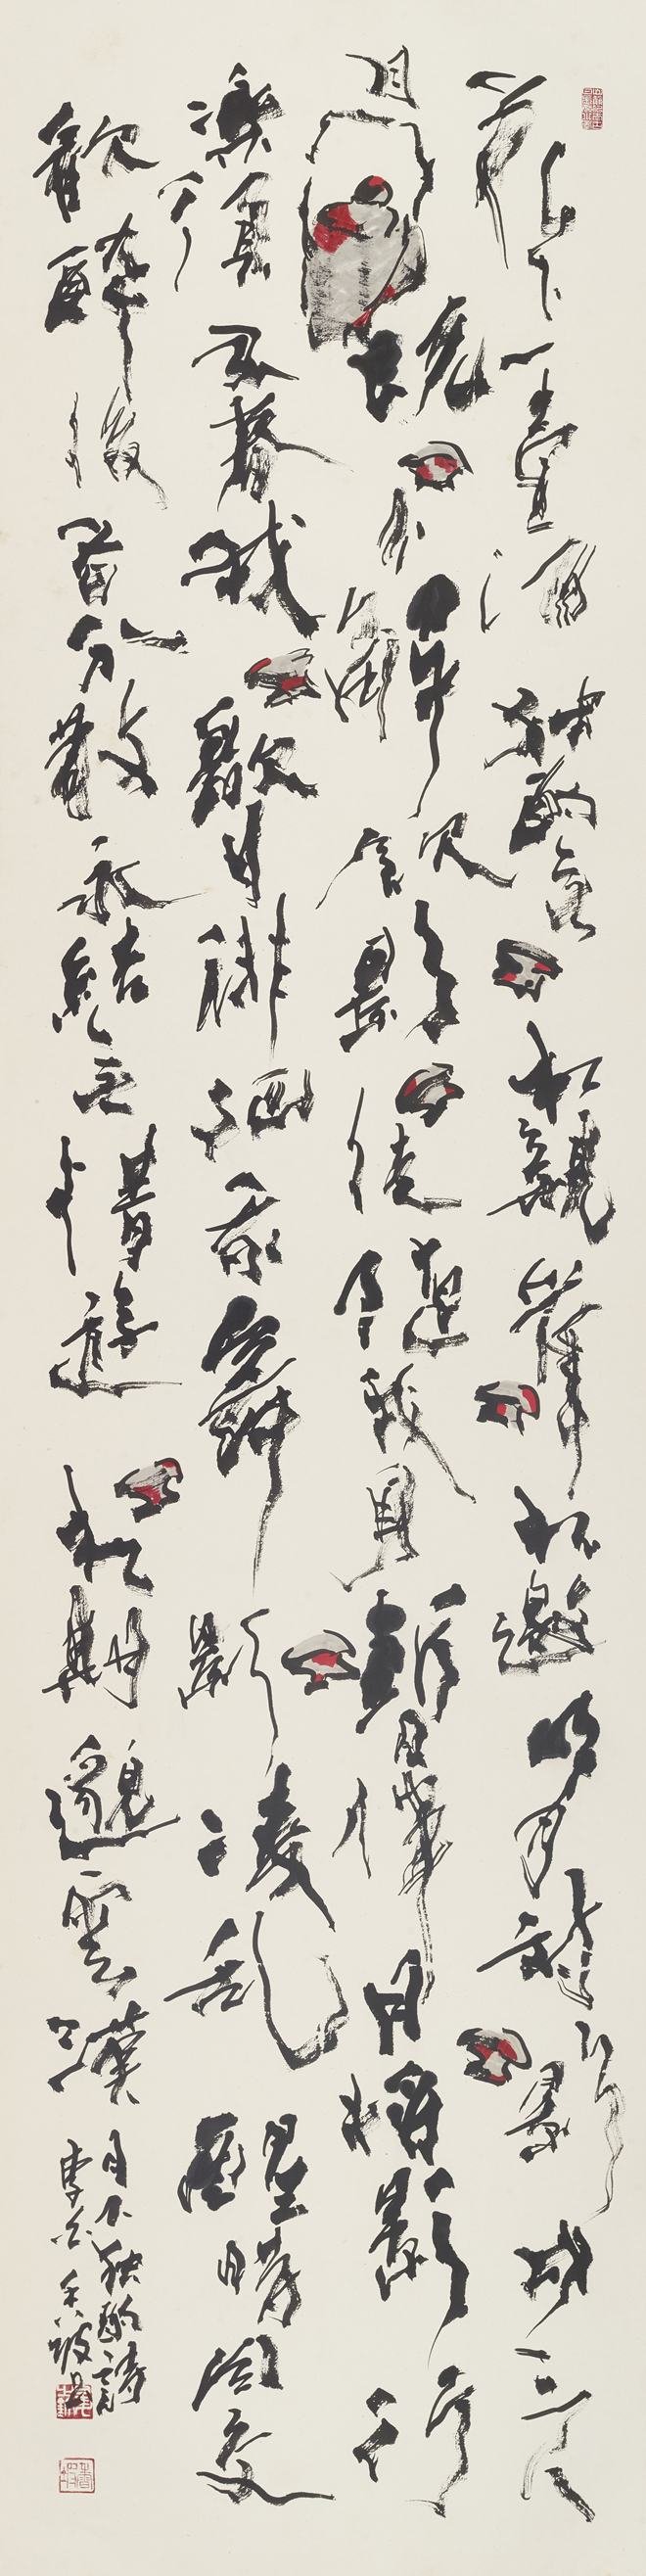 花下一壺酒獨酌無相親舉杯邀明月對影成三人
月既不解飲影徒隨我身暫伴月將影行
樂須及春我歌月徘徊我舞影凌乱醒時同交
歡醉後各分散永結無情遊相期邈雲漢
月下獨酌詩
李白